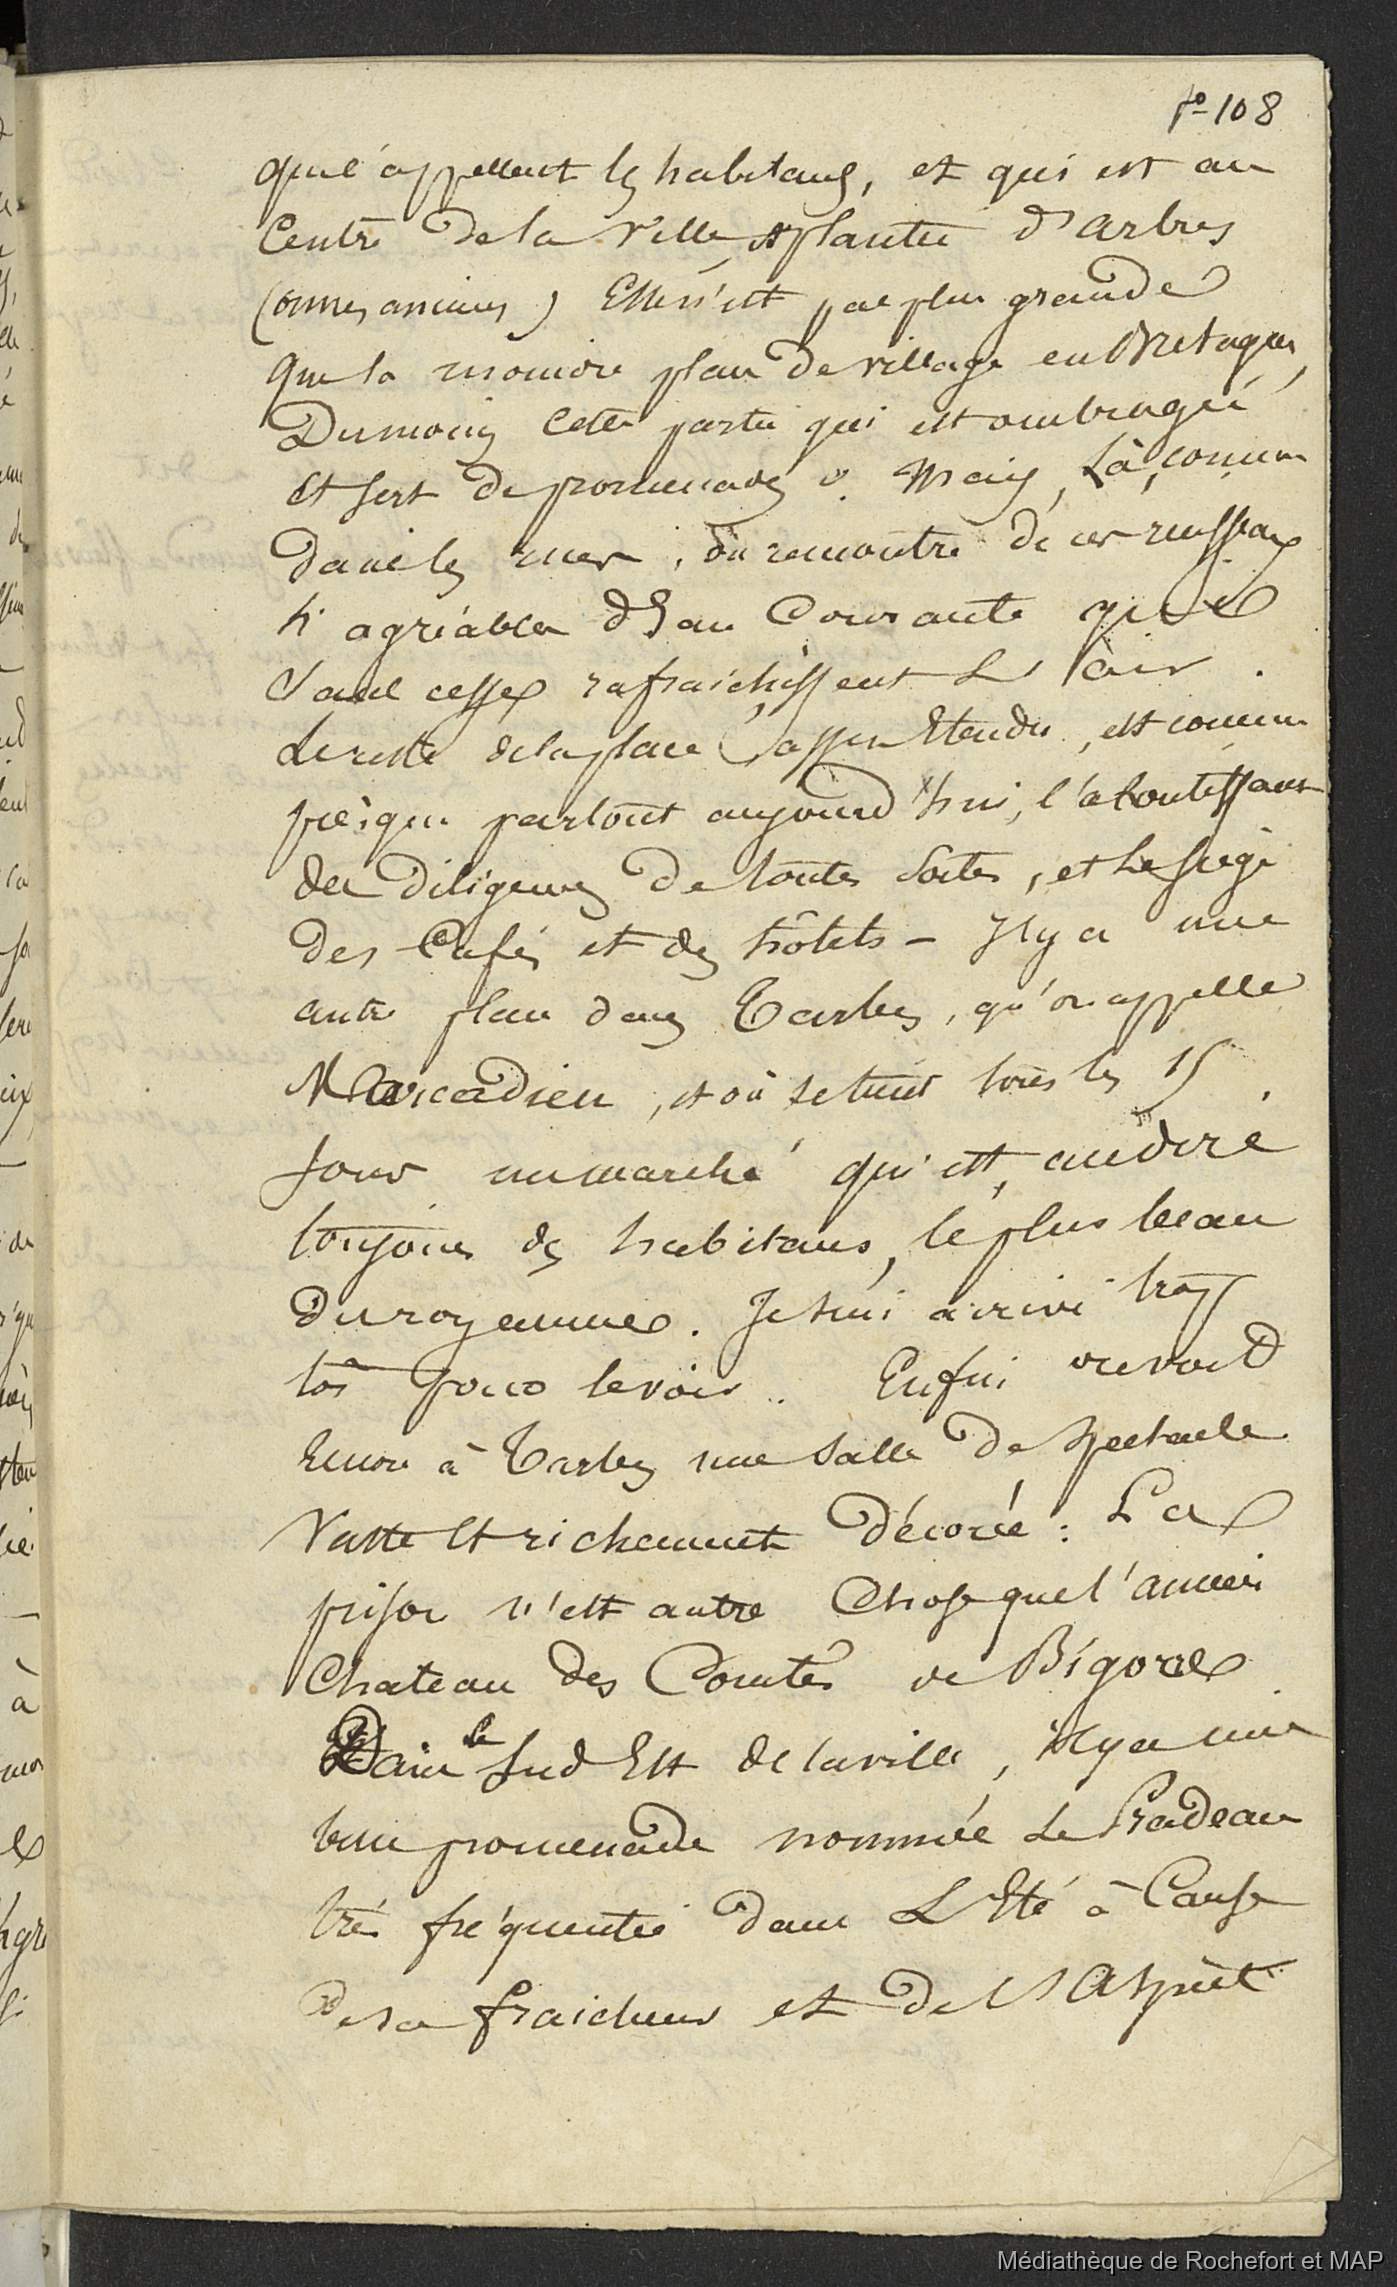 fo 108
que l'appellent les habitans, et qui est au
Centre de la Ville, et plantée d'arbres
(ormes anciens) Elle n'est pas plus grande
que la moindre place de village en Bretagne,
Dumoins cette partie qui est ombragée
et sert de promenade. Mais, Là, comme
dans les rues, on rencontre de ces ruisseaux
si agréables d'Eau Courante qui
sans cesse rafraichissent L'air.
Le reste de la place, assez Etendue, est comme
presque partout aujourd'hui, l'aboutissant
des Diligences De toutes Sortes, et le siège
des Cafés et des hôtels - Il y a une
autre place dans Tarbes, qu'on appelle
Marcadieu, et où se tient tous les 15
jours un marché qui est, au dire
toujours des habitans, le plus beau
du royaume. Je suis arrivé trop
tôt pour le voir. Enfin on voit
Encor à Tarbes une Salle De Spectacle
Vaste Et richement Décorée : La
prison n'est autre Chose que l'ancien
Chateau des Comtes de Bigore
Dans le Sud Est de la ville, il y a une
belle promenade nommée Le Pradeau
très fréquentée dans L'Eté à Cause
De sa fraicheur et de L'Aspect
Médiathèque de Rochefort et MAP